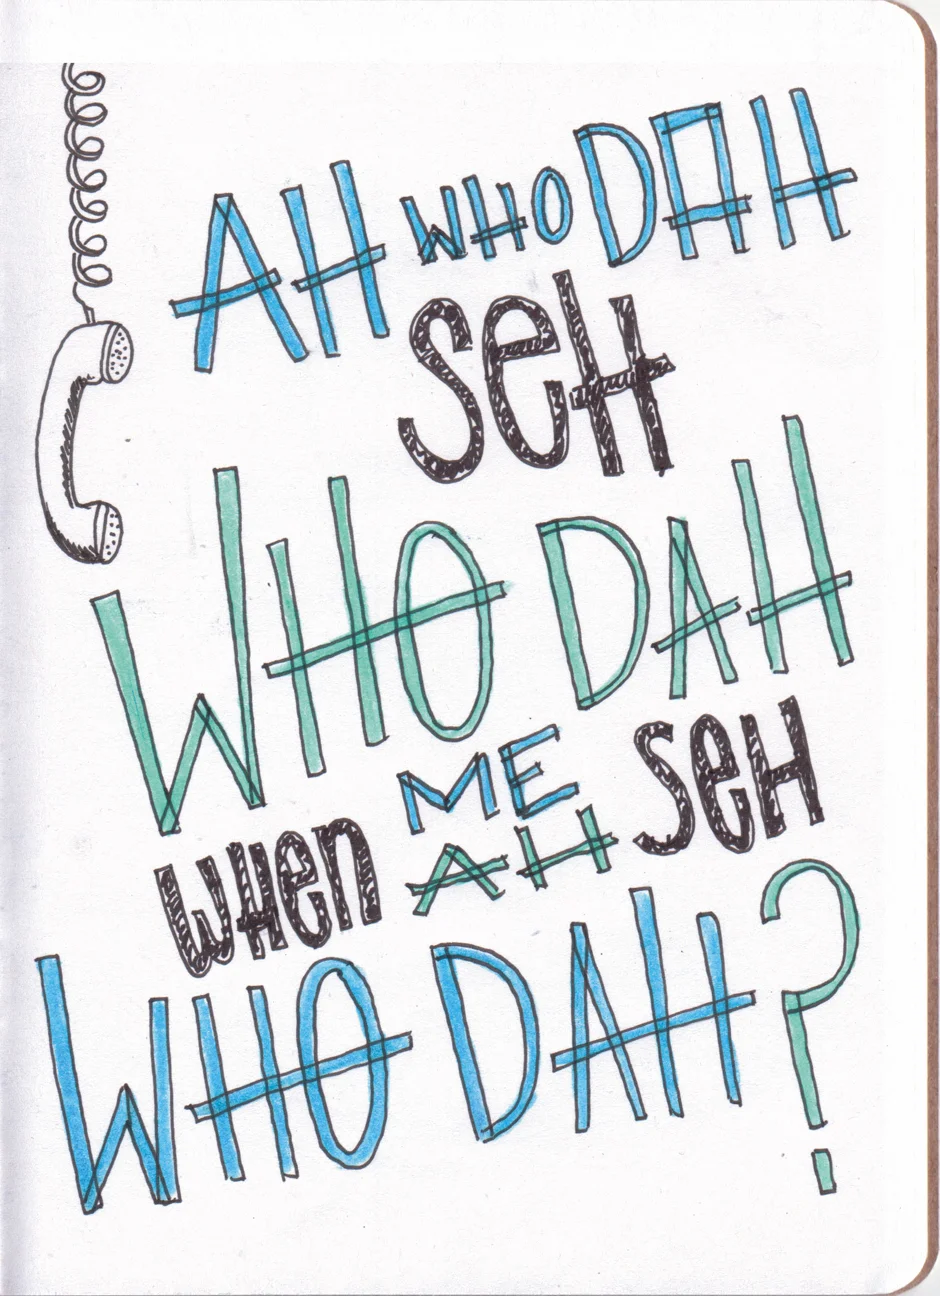 AH WHO DAH
SEH
WHO DAH
WHEN ME AH SEH
WHO DAH?